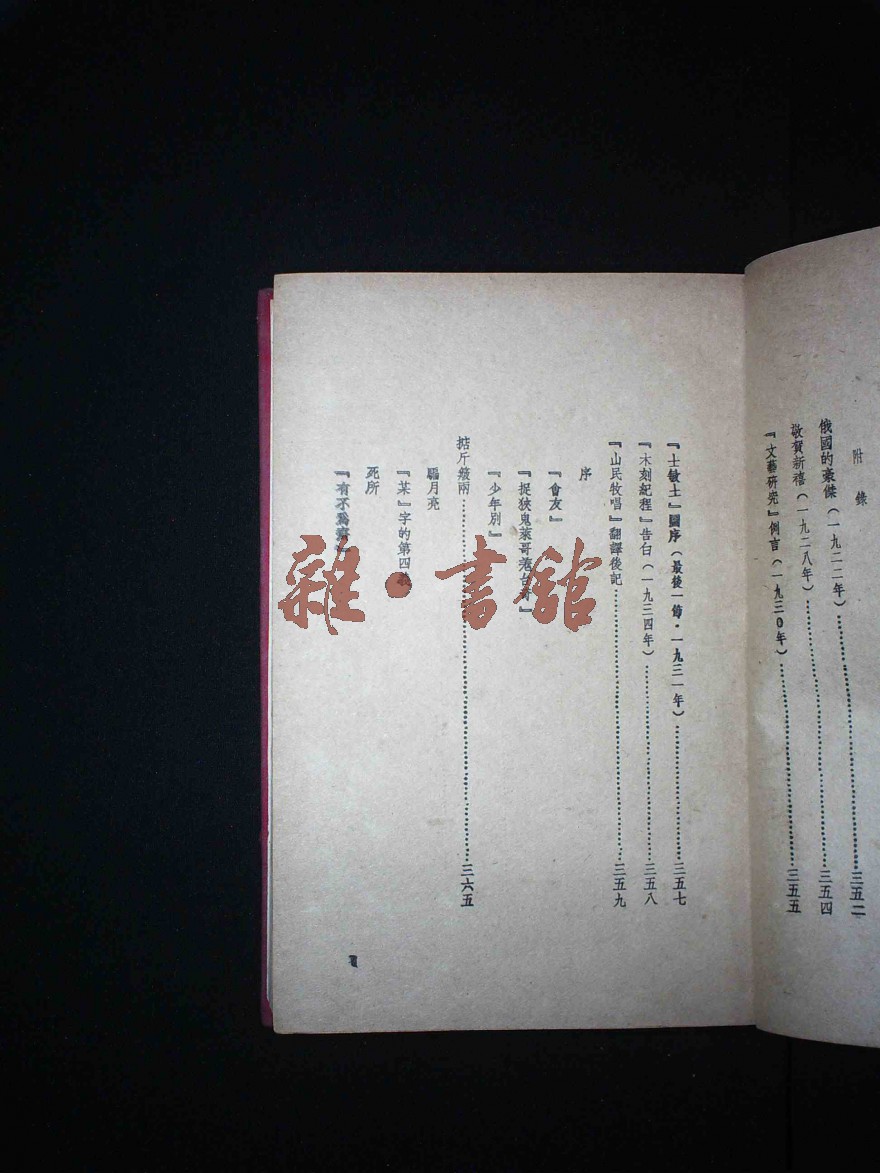 附錄
俄國的豪傑(一九二二年)……三五二
敬賀新禧(一九二八年)……三五四
『文藝研究』例言(一九三〇年)……三五五
『士敏土』圖序(最後一節・一九三一年)……三五七
『木刻紀程』告白(一九三四年)……三五八
『山民牧唱』翻譯後記……三五九
序
『會友』
『捉狹鬼萊哥羌台奇』
『少年別』
掂斤簸兩……三六五
騙月亮
『某』字的第四義
死所
『有不為齋』
雜・書館